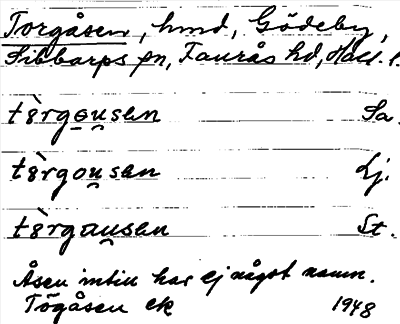 Torgåsen, hmd, Gödeby,
Sibbarps sn, Faurås hd, Hall. l.
tòrgɵu̯sen Sa.
tòrgou̯sen Lj.
tòrgau̯sen St.
Åsen intill har ej något namn.
Togåsen ek 1948